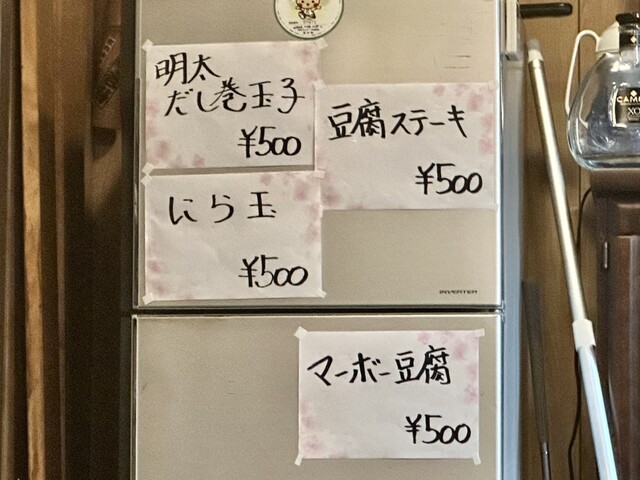 明太
だし巻玉子
¥500
豆腐ステーキ
¥500
にら玉
¥500
INVERTER
マーボー豆腐
¥500